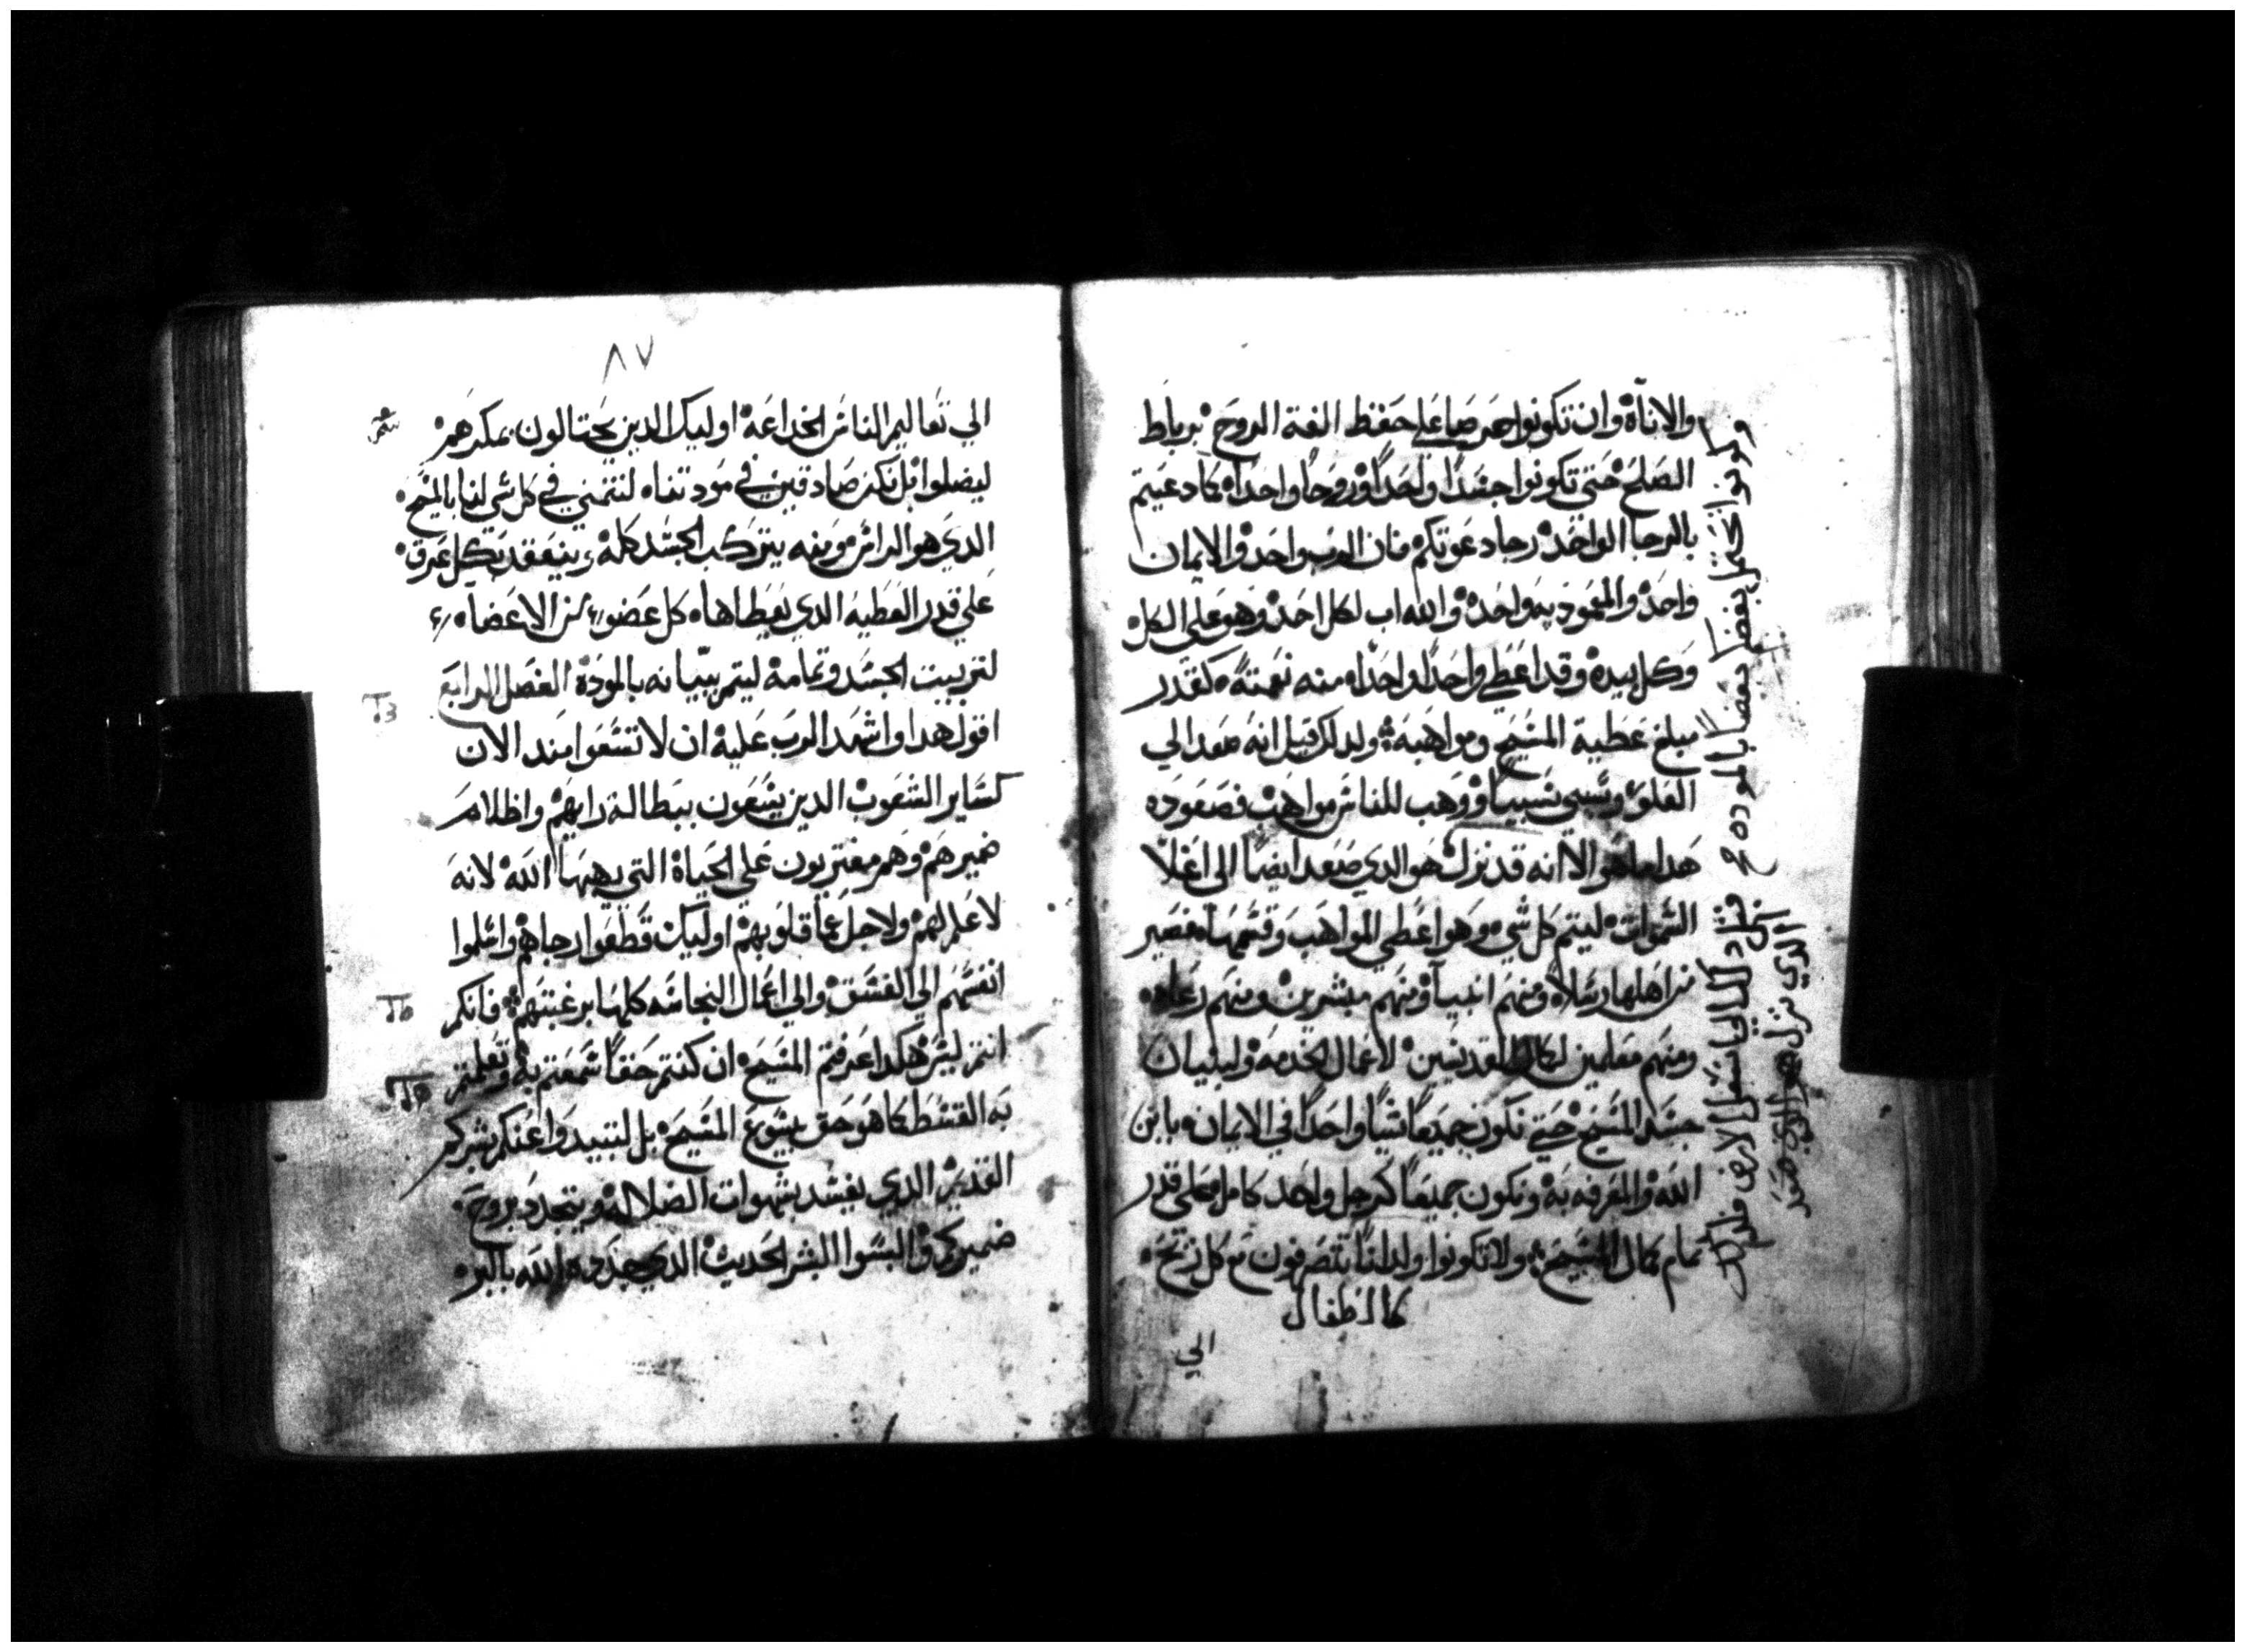 والاناة وان تكونوا حراصا على حفظ الفة الروح برباط
الصلح حتى تكونوا جسدا واحدا وروحا واحدا كما دعيتم
بالرجا الواحد رجا دعوتكم فان الرب واحد والايمان
واحد والمعموديه واحده والله اب لكل احد وهو على الكل
وكل بيده وقد اعطي واحدا واحدا منه نعمته كقدر
مبلغ عطية المسيح ومواهبه ولدلك قيل انه صعد الي
العلو وسبى سبيا ووهب للناس مواهب فصعوده
هدا ما هو الا انه قد نزل هو الدي صعد ايضا الى اعلا
السموات ليتم كل شي وهو اعطي المواهب وقسمها فصير
من اهلها رسلا ومنهم انبيا ومنهم مبشرين ومنهم رعاه
ومنهم معلمين لكمال القديسين لاعمال الخدمه ولبنيان
جسد المسيح حتي نكون جميعا شيا واحدا في الايمان بابن
الله والمعرفه به ونكون جميعا كرجل واحد كامل على قدر
تمام كمال المسيح ولا تكونوا ولدانا يتصرفون مع كل ريح
كالاطفال
الي
وكونوا محتمل بعضا بعضا بالموده
الاسفل الارض
الدي نزل هو الدي صعد
٨٧
الي تعاليم الناس الخداعة اوليك الدين يحتالون بمكرهم
ليضلوا بل نكن صادقين في مودتنا لننمي في كل شي لنا بالمسيح
الدي هو الراس ومنه يتركب الجسد كله وينعقد بكل عرق
على قدر العطيه الدي يعطاها كل عضو من الاعضا
لتربيت الجسد وتمامه ليتم بنيانه بالمودة الفصل الرابع
اقول هدا واشهد الرب عليه ان لا تسعوا مند الان
كساير الشعوب الدين يسعون ببطالة رايهم واظلام
ضميرهم وهم مغتربون على الحياة التي يهبها الله لانه
لا علم لهم ولاجل عما قلوبهم اوليك قطعوا رجاهم واسلموا
انفسهم الي الفسق والي اعمال النجاسه كلها برغبتهم فانكم
انتم ليس هكدا عرفتم المسيح ان كنتم حقا سمعتم به وتعلمتم
به القسط كما هو حق بيسوع المسيح بل لنبيد وا عنكم بشركم
القديم الدي يفسد بشهوات الضلالة ويتجدد بروح
ضميركم والبسوا البشر الحديث الدي جدده الله بالبر